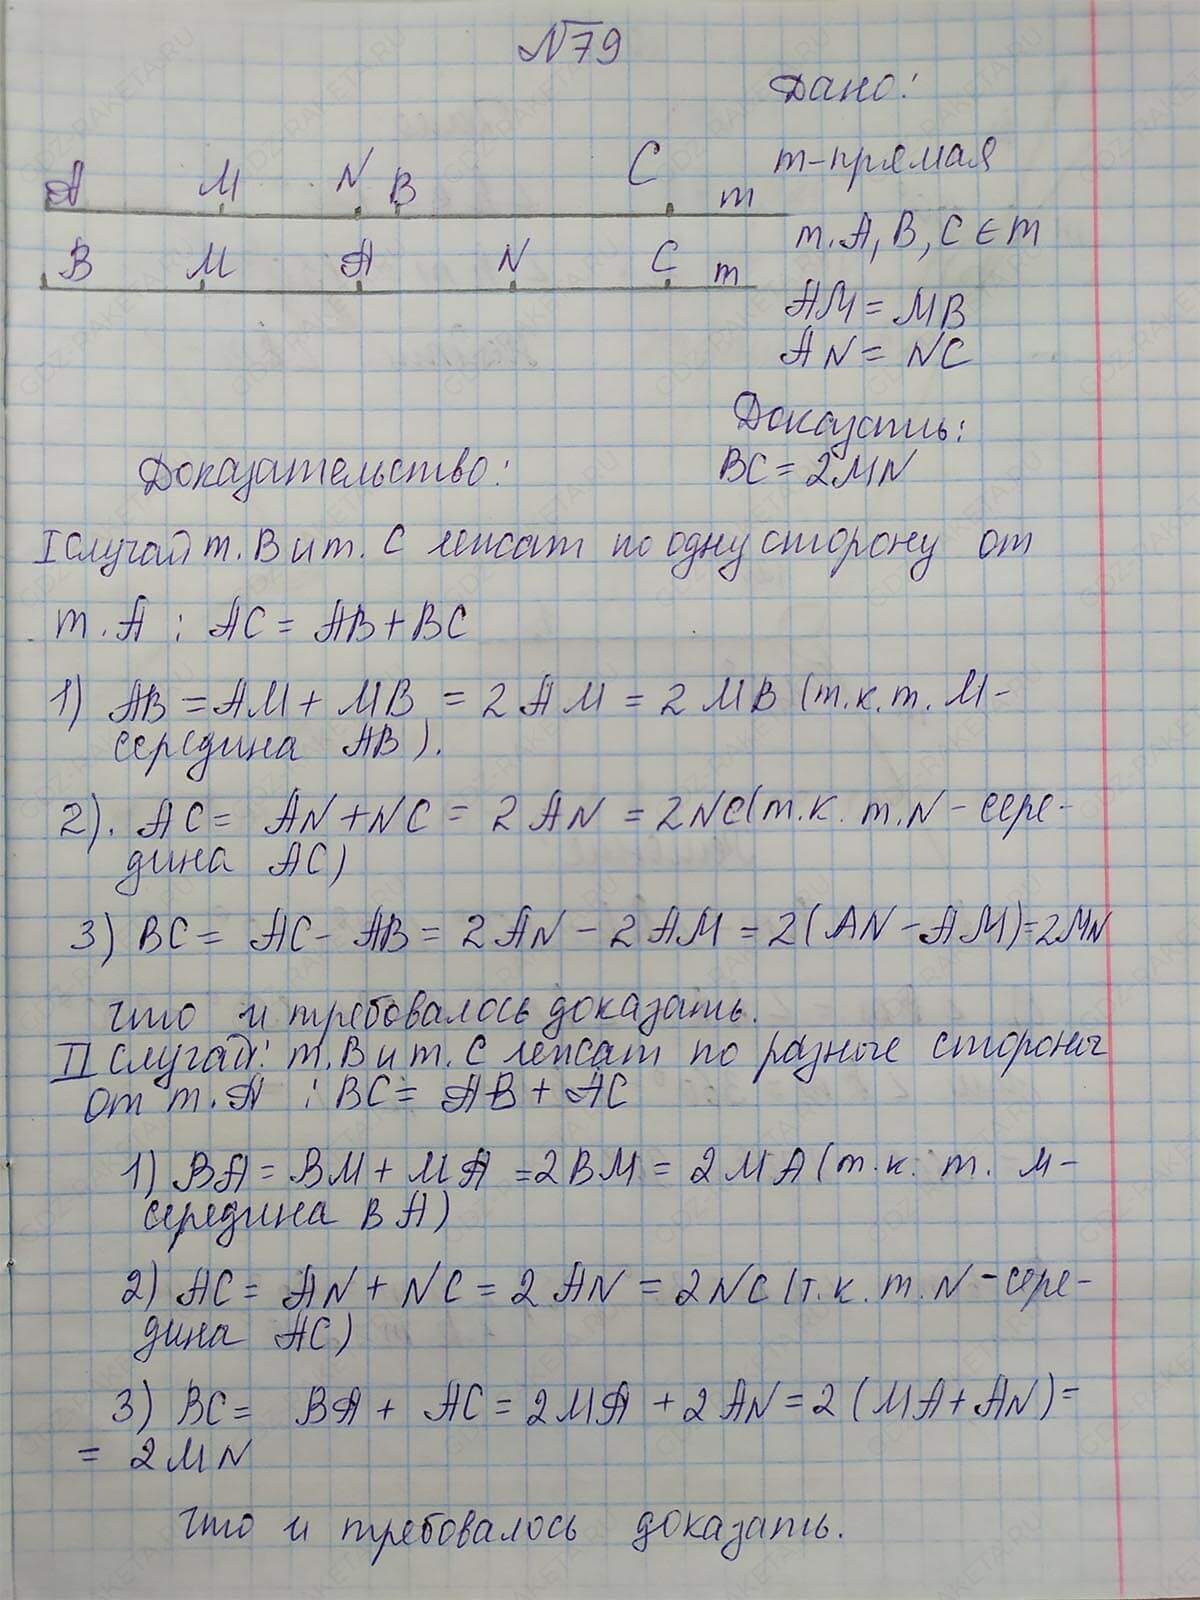 №79
Дано:
A M N B C m
m-прямая
т. A, B, C ∈ m
B M A N C m
AM = MB
AN = NC
Доказать:
BC = 2MN
Доказательство:
I Случай т. B и т. C лежат по одну сторону от
т. A : AC = AB + BC
1) AB = AM + MB = 2 AM = 2 MB (т.к. т. M -
середина AB).
2). AC = AN + NC = 2 AN = 2NC (т.к. т. N - сере-
дина AC)
3) BC = AC - AB = 2 AN - 2 AM = 2(AN - AM) = 2MN
что и требовалось доказать.
II Случай: т. B и т. C лежат по разные стороны
от т. A : BC = AB + AC
1) BA = BM + MA = 2BM = 2 MA (т.к. т. M -
середина BA)
2) AC = AN + NC = 2 AN = 2NC (т.к. т. N - сере-
дина AC)
3) BC = BA + AC = 2MA + 2 AN = 2 (MA + AN) =
= 2 MN
что и требовалось доказать.